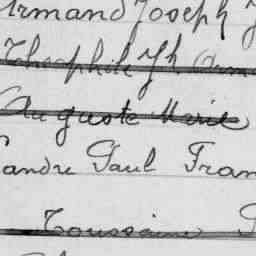 Armand Joseph J
Théophile Jh Arm
Auguste Marie
andre Paul Fran
Toussaine